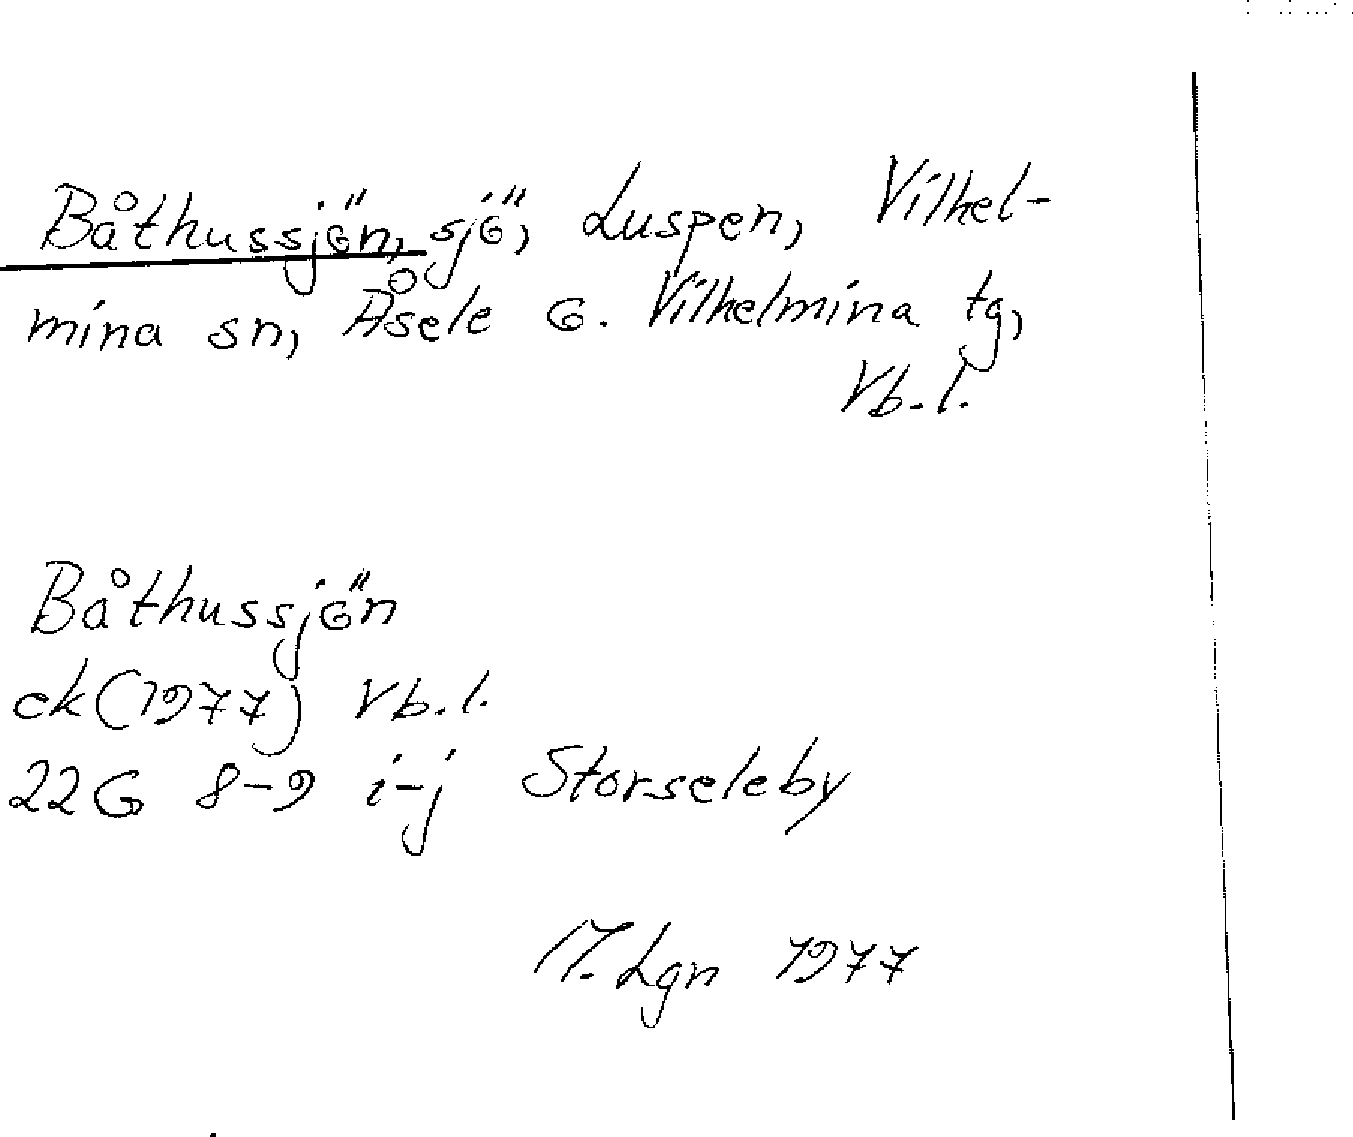 Båthussjön, sjö, Luspen, Vilhel-
mina sn, Åsele o. Vilhelmina tg,
Vb. l.
Båthussjön
ek (1977) Vb. l.
22G 8-9 i-j Storseleby
Lgn 1977